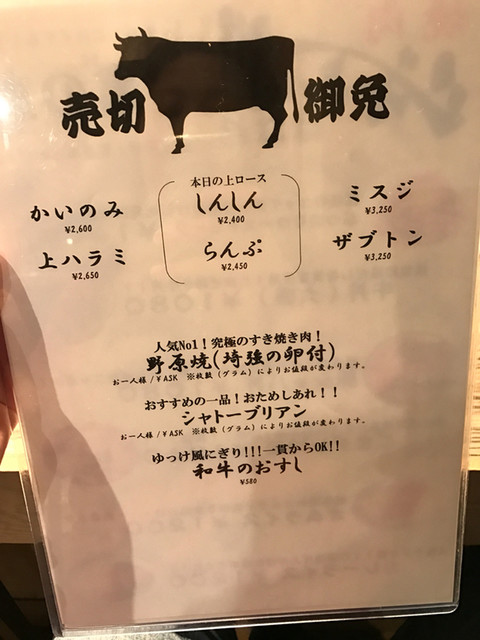 売切 御免
本日の上ロース
かいのみ
¥2,600
しんしん
¥2,400
ミスジ
¥3,250
上ハラミ
¥2,650
らんぷ
¥2,450
ザブトン
¥3,250
人気No1！究極のすき焼き肉！
野原焼(埼強の卵付)
お一人様/¥ASK ※枚数（グラム）によりお値段が変わります。
おすすめの一品！おためしあれ！！
シャトーブリアン
お一人様/¥ASK ※枚数（グラム）によりお値段が変わります。
ゆっけ風にぎり!!!一貫からOK!!
和牛のおすし
¥580